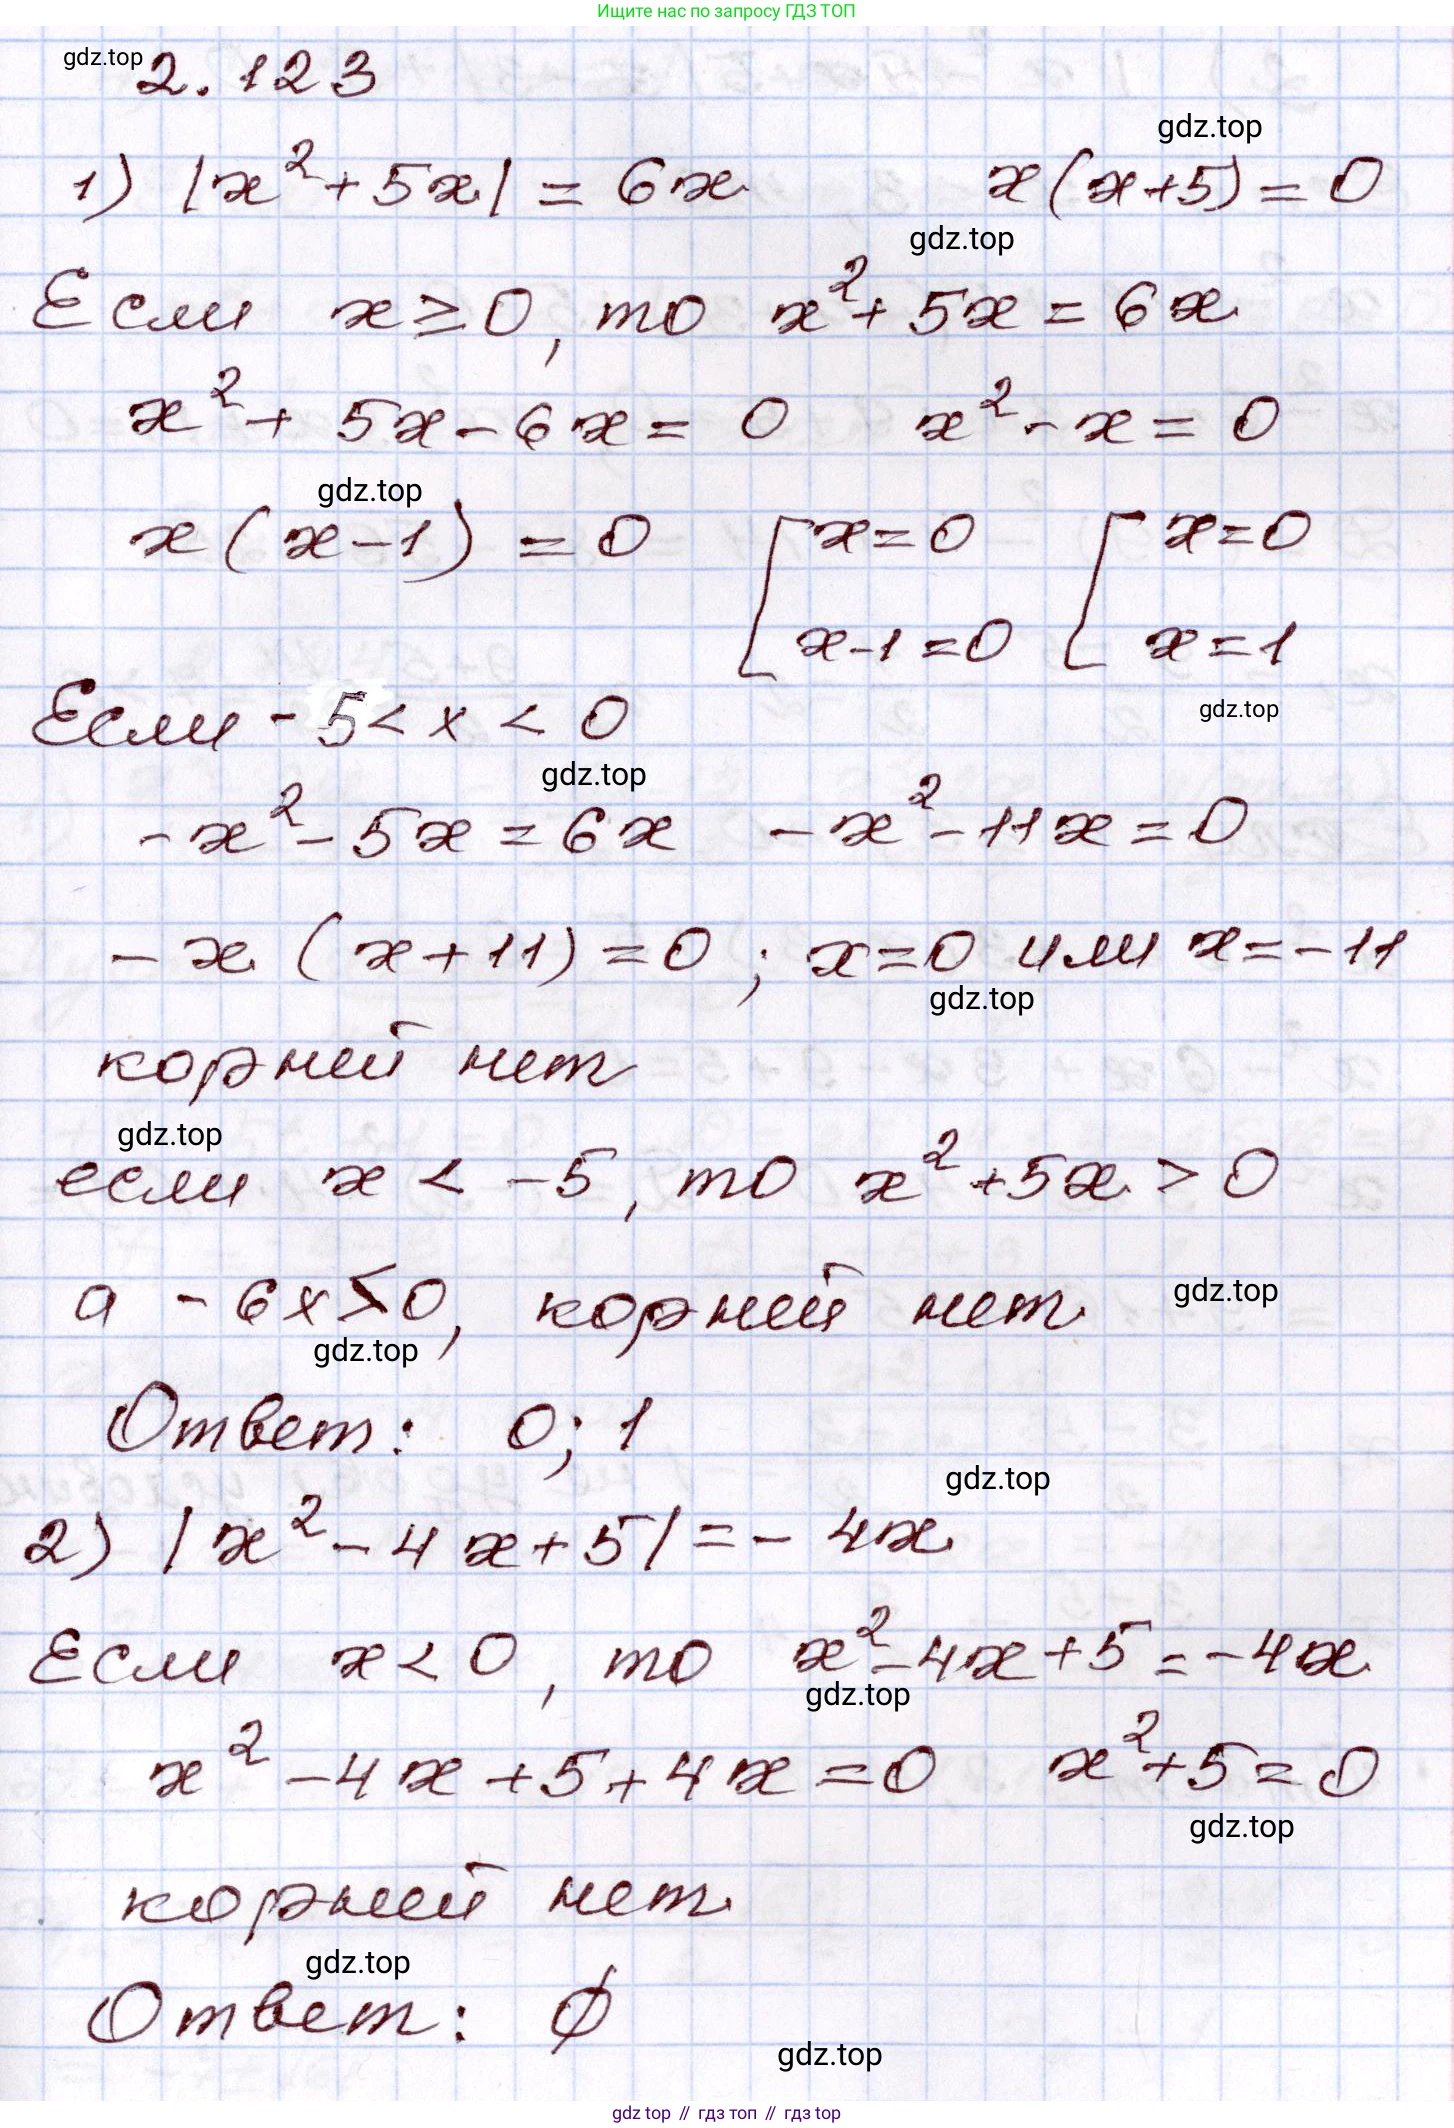 Ищите нас по запросу ГДЗ ТОП
gdz.top
2.123
gdz.top
1) |x²+5x|=6x x(x+5)=0
gdz.top
Если x≥0, то x²+5x=6x
x²+5x-6x=0 x²-x=0
gdz.top
x(x-1)=0 [x=0 [x=0
x-1=0 x=1
gdz.top
Если -5<x<0
gdz.top
-x²-5x=6x -x²-11x=0
-x(x+11)=0; x=0 или x=-11
gdz.top
корней нет
gdz.top
если x<-5, то x²+5x>0
gdz.top
а -6x<0, корней нет
gdz.top
Ответ: 0; 1
gdz.top
2) |x²-4x+5|=-4x
Если x<0, то x²-4x+5=-4x
gdz.top
x²-4x+5+4x=0 x²+5=0
gdz.top
корней нет
gdz.top
Ответ: ∅
gdz.top
gdz top // гдз топ // гдз top